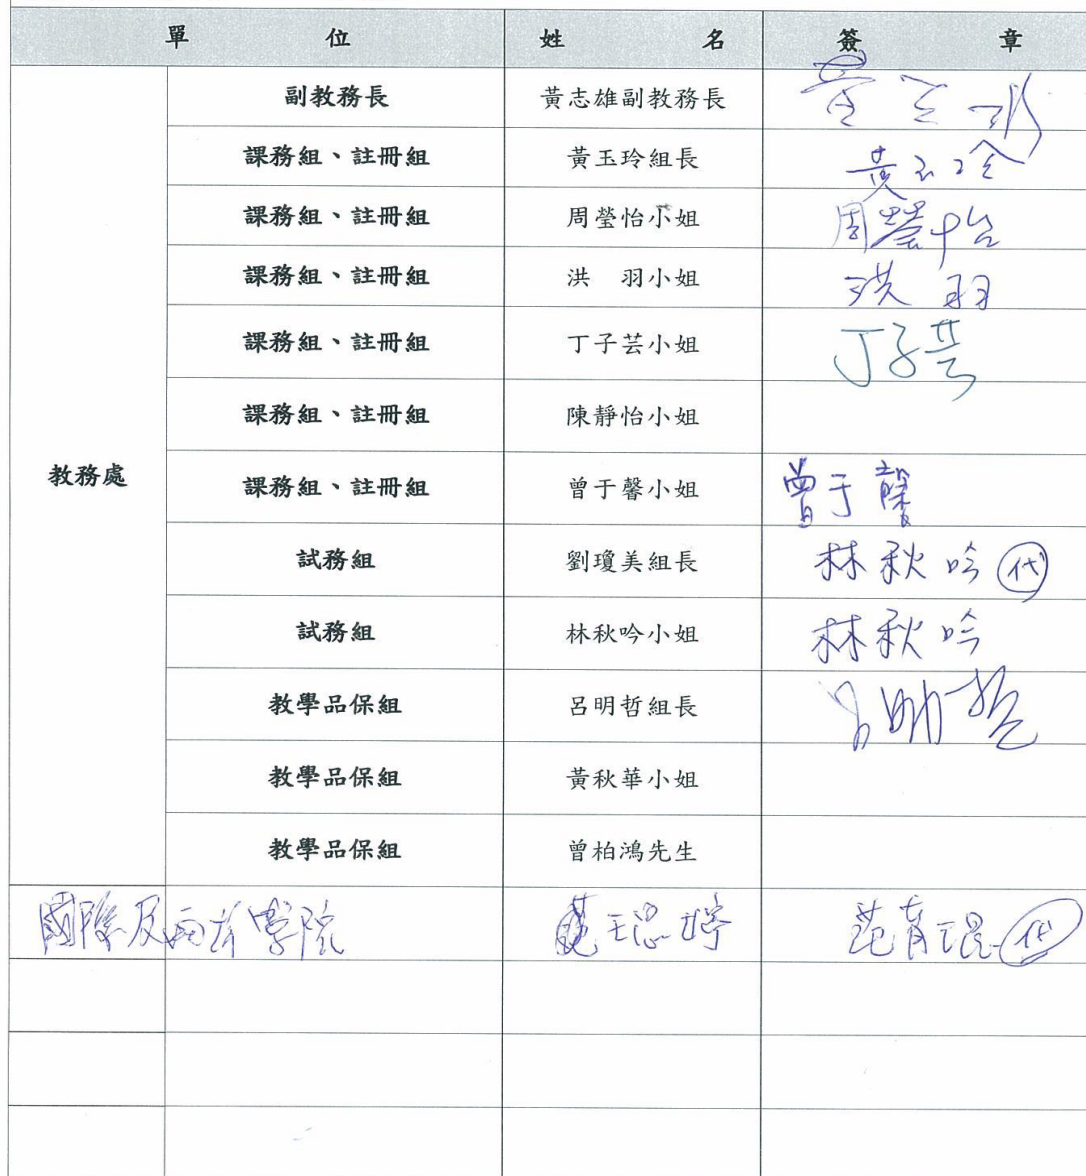 單 位 姓 名 簽 章
教務處
副教務長 黃志雄副教務長 黃志雄
課務組、註冊組 黃玉玲組長 黃玉玲
課務組、註冊組 周瑩怡小姐 周瑩怡
課務組、註冊組 洪 羽小姐 洪羽
課務組、註冊組 丁子芸小姐 丁子芸
課務組、註冊組 陳靜怡小姐
課務組、註冊組 曾于馨小姐 曾于馨
試務組 劉瓊美組長 林秋吟 代
試務組 林秋吟小姐 林秋吟
教學品保組 呂明哲組長 呂明哲
教學品保組 黃秋華小姐
教學品保組 曾柏鴻先生
國際及兩岸學院 王思婷 范育琨 代